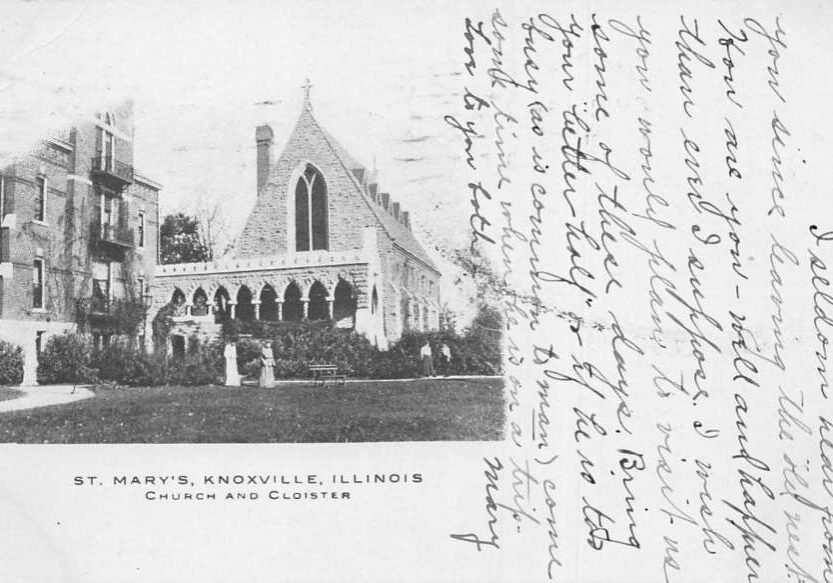 I seldom hear from
you since leaving the old nest.
How are you - well and happier
than ever I suppose. I wish
you would plan to visit us
some of these days. Bring
your "better half" or if he is too
busy (as is common to man) come
some time when he is on a trip.
Love to you both
Mary
ST. MARY'S, KNOXVILLE, ILLINOIS
CHURCH AND CLOISTER